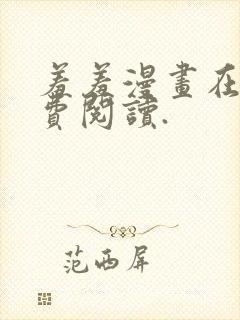 羞羞漫畫在
費閱讀.
范西屏